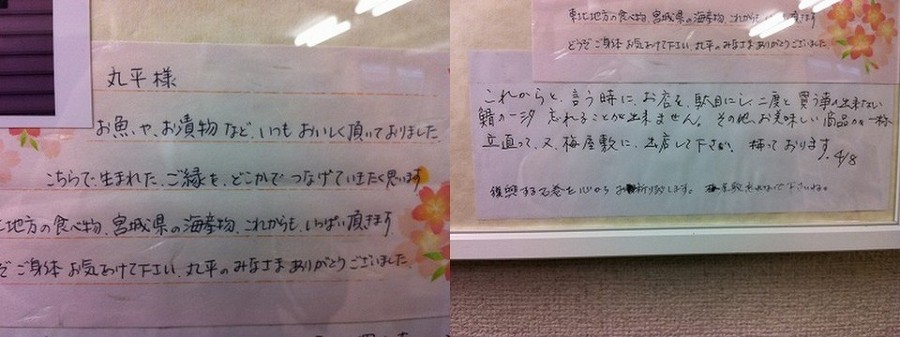 丸平様
お魚や、お漬物など、いつもおいしく頂いておりました
こちらで、生まれた、ご縁を、どこかで、つなげていきたく思います
地方の食べ物、宮城県の海産物、これからも、いっぱい頂きます
ご身体お気をつけて下さい、丸平のみなさまありがとうございました
東北地方の食べ物、宮城県の海産物、これからも、頂きます
どうぞご身体お気をつけて下さい、丸平のみなさまありがとうございました
これからと、言う時に、お店を、駄目にし、二度と買う事が出来ない
鯖の一汐 忘れることが出来ません。その他、お美味しい商品が
立直って、又、梅屋敷に、出店して下さい、待っております。4/8
復興する石巻を心からお祈り致します。